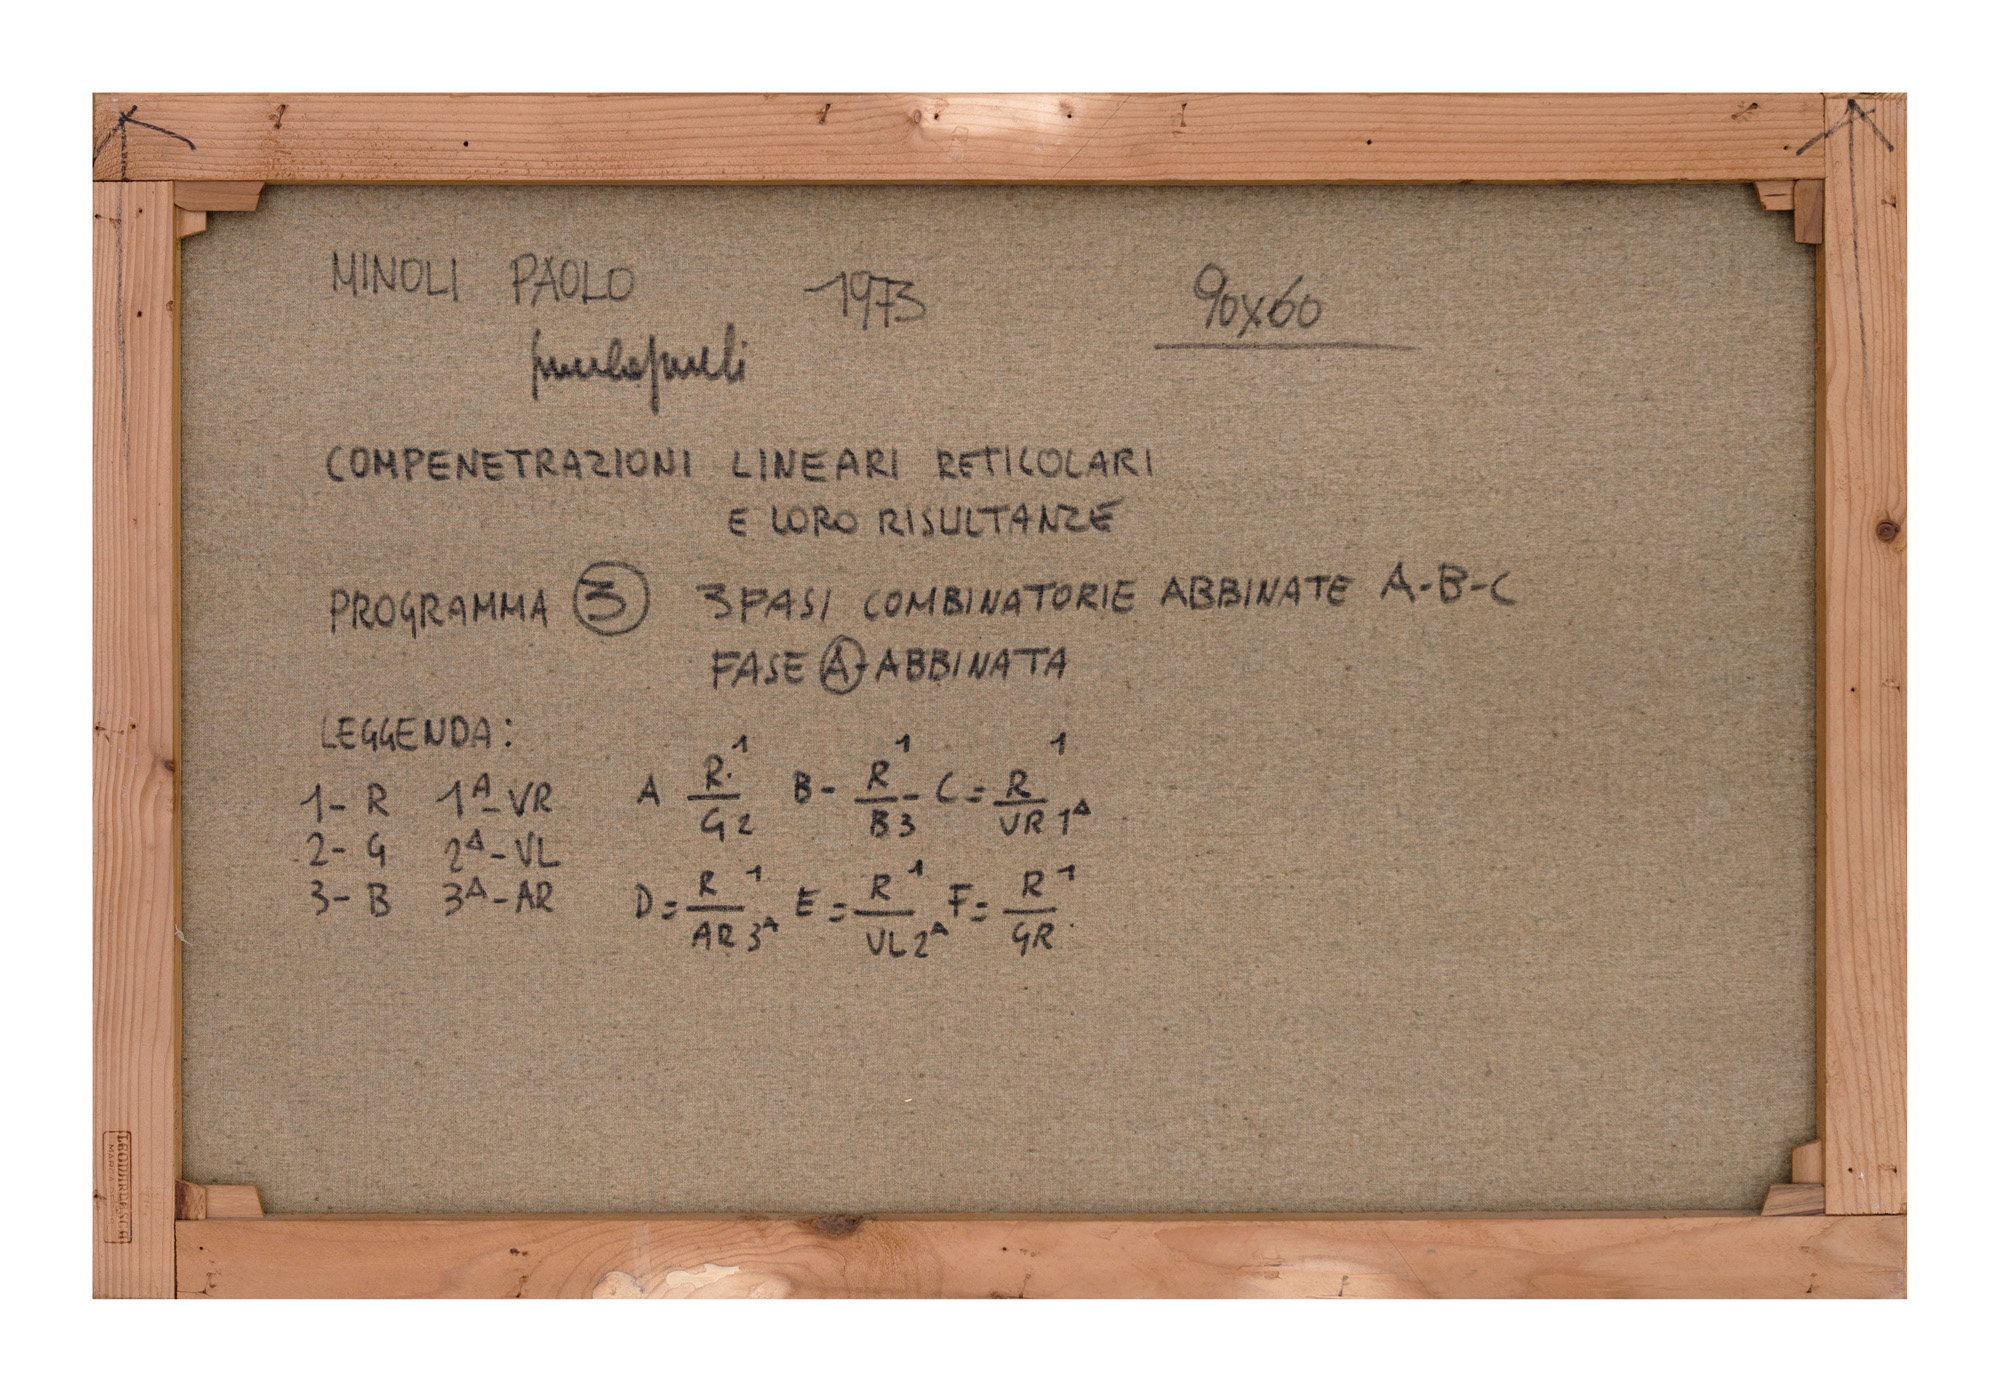 MINOLI PAOLO 1973 90x60
COMPENETRAZIONI LINEARI RETICOLARI
E LORO RISULTANZE
PROGRAMMA 3 3 FASI COMBINATORIE ABBINATE A-B-C
FASE A-ABBINATA
LEGGENDA:
1- R 1A-VR
2- G 2A-VL
3- B 3A-AR
A R1/G2 B- R1/B3 - C= R1/VR1A
D= R1/AR3A E= R1/VL2A F= R1/GR